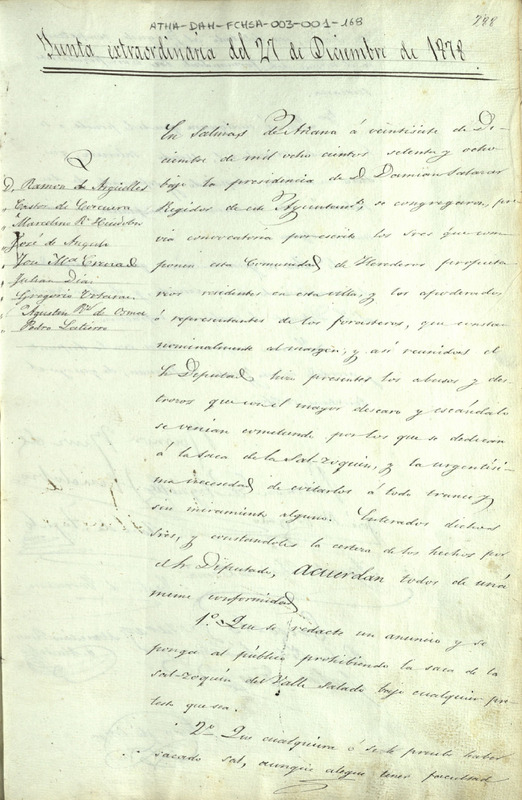 ATHA-DAH-FCHSA-003-001-168
288
Junta extraordinaria del 27 de Diciembre de 1878.
En Salinas de Añana á veintisiete de Di-
ciembre de mil ocho cientos setenta y ocho
bajo la presidencia de D. Damian Salazar
Regidor de este Ayuntamto, se congregaron, pre-
via convocatoria por escrito los Sres que com-
ponen esta Comunidad de Herederos propieta-
rios residentes en esta villa, y los apoderados
ó representantes de los forasteros, que constan
nominalmente al margen, y así reunidos el
Sr Diputado hizo presentes los abusos y des-
trozos que con el mayor descaro y escándalo
se venian cometiendo por los que se dedican
á la saca de la Sal-zoquin, y la urgentísi-
ma necesidad de evitarlos á todo trance y
sin miramiento alguno. Enterados dichos
Sres, y constandoles la certeza de los hechos por
el Sr Diputado, acuerdan todos de una
meme conformidad
1º Que se redacte un anuncio y se
ponga al público prohibiendo la saca de la
Sal-zoquin del Valle Salado bajo cualquier pre-
testo que sea.
2º Que cualquiera ó se le pruebe haber
sacado sal, aunque alegue tener facultad
D. Ramon de Argüelles
" Castor de
" Marcelino Rz
" José de
" José Ma
" Julian Diaz
" Gregorio
" Agustin Rz de
" Pedro